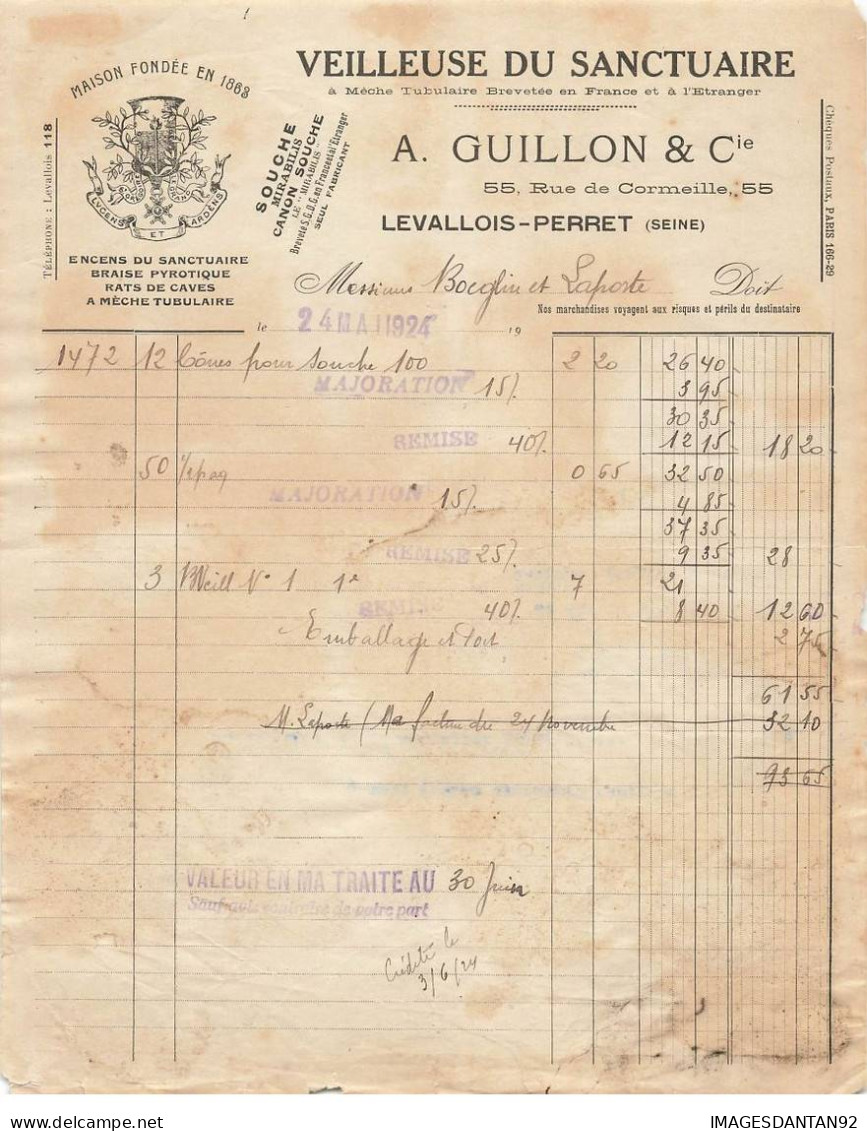 MAISON FONDÉE EN 1868
LVCENS ET ARDENS
TÉLÉPHONE : Levallois 118
ENCENS DU SANCTUAIRE
BRAISE PYROTIQUE
RATS DE CAVES
A MÈCHE TUBULAIRE
VEILLEUSE DU SANCTUAIRE
à Mèche Tubulaire Brevetée en France et à l'Etranger
SOUCHE
MIRABILIS
CANON SOUCHE
LE "MIRABILIS"
Breveté S.G.D.G. en France et à l'Etranger
SEUL FABRICANT
A. GUILLON & Cie
55, Rue de Cormeille, 55
LEVALLOIS-PERRET (SEINE)
Chèques Postaux, PARIS 166-29
Messieurs Boeglin et Laporte Doit
Nos marchandises voyagent aux risques et périls du destinataire
le 24 MAI 1924 19
1472 12 Cônes pour souche 100 2 20 26 40
MAJORATION 15% 3 95
30 35
REMISE 40% 12 15 18 20
50 0 65 32 50
MAJORATION 15% 4 85
37 35
REMISE 25% 9 35 28
3 Veill N° 1 7 21
REMISE 40% 8 40 12 60
Emballage et Port 2 75
61 55
M. Laporte (Ma facture du 24 novembre 32 10
93 65
VALEUR EN MA TRAITE AU 30 Juin
Sauf avis contraire de votre part
Crédité le
3/6/24
IMAGESDANTAN92